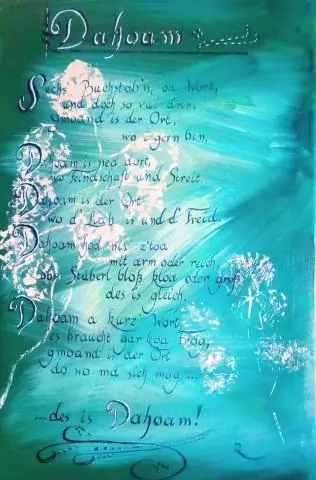 Dahoam
Sechs Buchstob'n, oa Wort,
und doch so vui drin.
Gmoand is der Ort,
wo i gern bin.
Dahoam is ned dort,
wo Feindschaft und Streit.
Dahoam is der Ort
wo d' Liab is und d' Freid.
Dahoam hod nix z'toa
mit arm oder reich,
obs Stüberl bloß kloa oder groß,
des is gleich.
Dahoam a kurz' Wort,
es braucht gar koa Frog,
gmoand is der Ort
do wo ma sich mog....
...des is Dahoam!